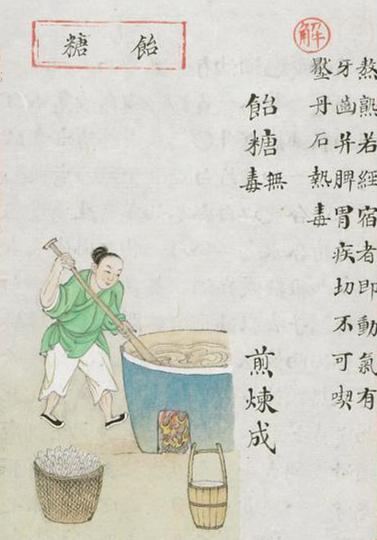 熬熟若經宿者即動氣有
牙齒并脾胃疾切不可喫
解
壓丹石熱毒
飴糖無毒
煎煉成
飴糖